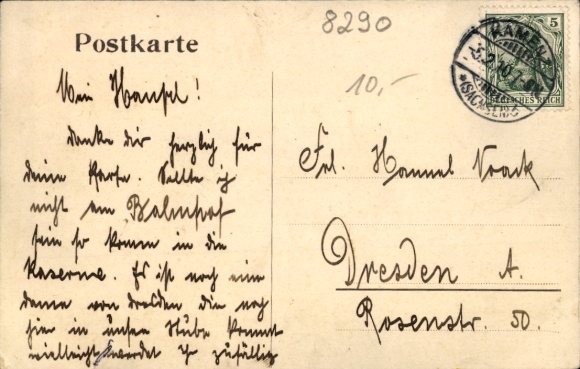 8290
Postkarte
KAMENZ
5
5.2.10.
*(SACHSEN)
DEUTSCHES REICH
10,-
Mein Hansel!
danke dir herzlich für
deine Karte. Sollte ich
nicht am Bahnhof
sein so komm in die
Kaserne. Es ist noch eine
dame von dresden die nach
hier in unsere Stube kommt
vielleicht werdet ihr zufällig
Frl. Hannel Noack
Dresden A.
Rosenstr. 50.